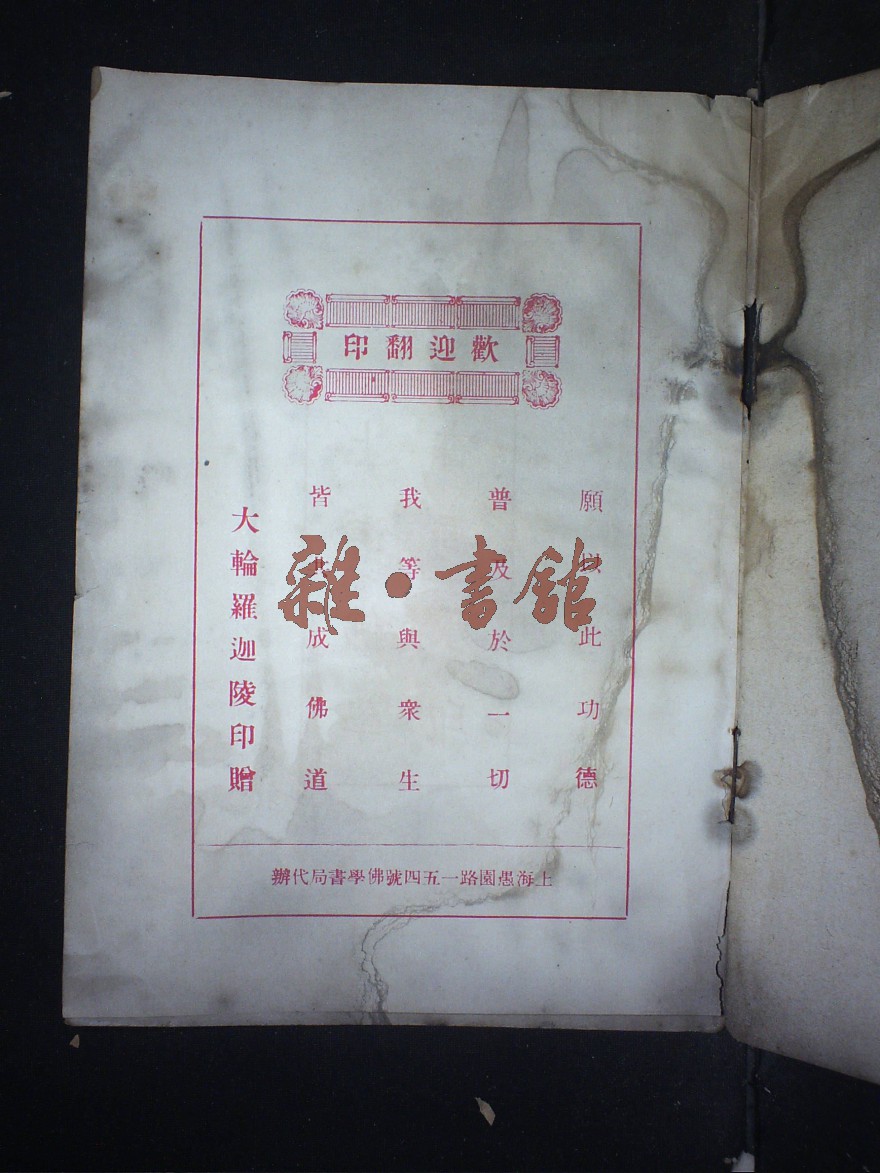 歡迎翻印
願以此功德
普及於一切
我等與衆生
皆共成佛道
大輪羅迦陵印贈
上海愚園路一五四號佛學書局代辦
雜·書館